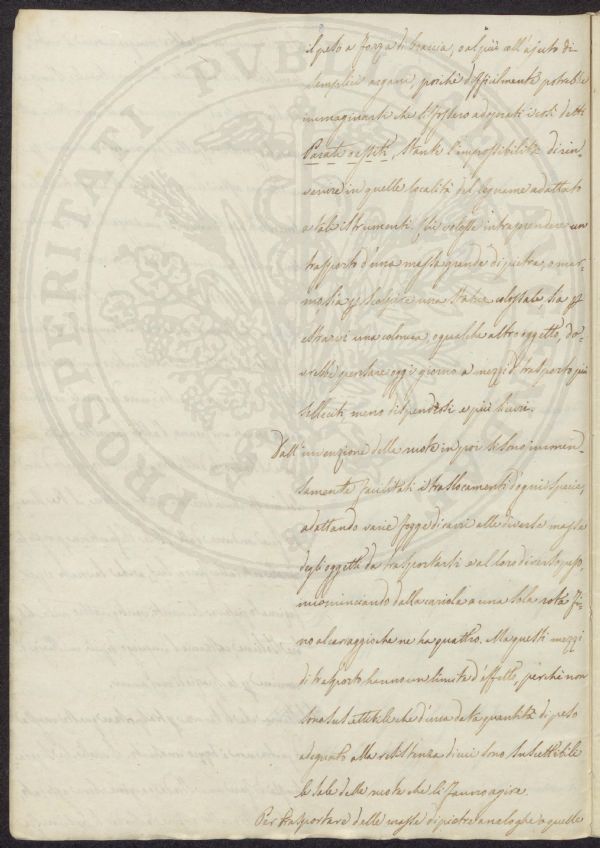 il peso a forza di braccia, o al più coll'ajuto di
semplici argani, poichè difficilmente potrebbe
immaginarsi che si fossero adoperati i così detti
stante l'impossibilità di rin-
venire in quelle località del legname adattato
a tali istrumenti. Chi volesse intraprendere un
trasporto d'una massa grande di pietra, o mar-
mo, sia p scolpire una statua colossale, sia p
estrarvi una colonna, o qualche altro oggetto, do-
vrebbe pensare oggi giorno a mezzi di trasporto più
solleciti, meno dispendiosi e più sicuri.
Dall'invenzione delle ruote in poi si sono immen-
samente facilitati i traslocamenti d'ogni specie,
adattando varie forze di carri alle diverse masse
degli oggetti da trasportarsi e al loro diverso peso,
incominciando dalla cariola a una sola rota fi-
no al carraggio che ne ha quattro. Ma questi mezzi
di trasporto hanno un limite d'effetto, perchè non
sono suscettibili che d'una data quantità di peso
adeguato alla resistenza di cui sono suscettibile
le sale delle ruote che li fanno agire.
Per trasportare delle masse di pietre analoghe a quelle
PROSPERITATI PVBLICAE